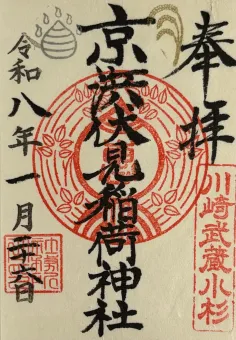 奉拝
京浜伏見稲荷神社
令和八年一月二十六日
川崎武蔵小杉